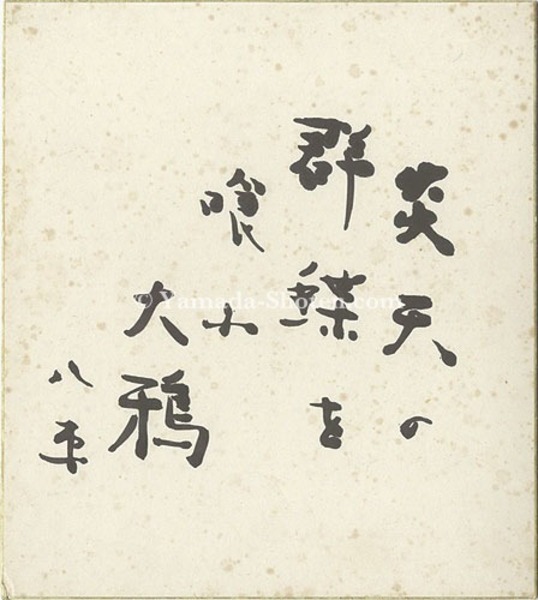 炎天の
群蝶を
喰ふ
大鴉
八束
© Yamada-Shoten.com